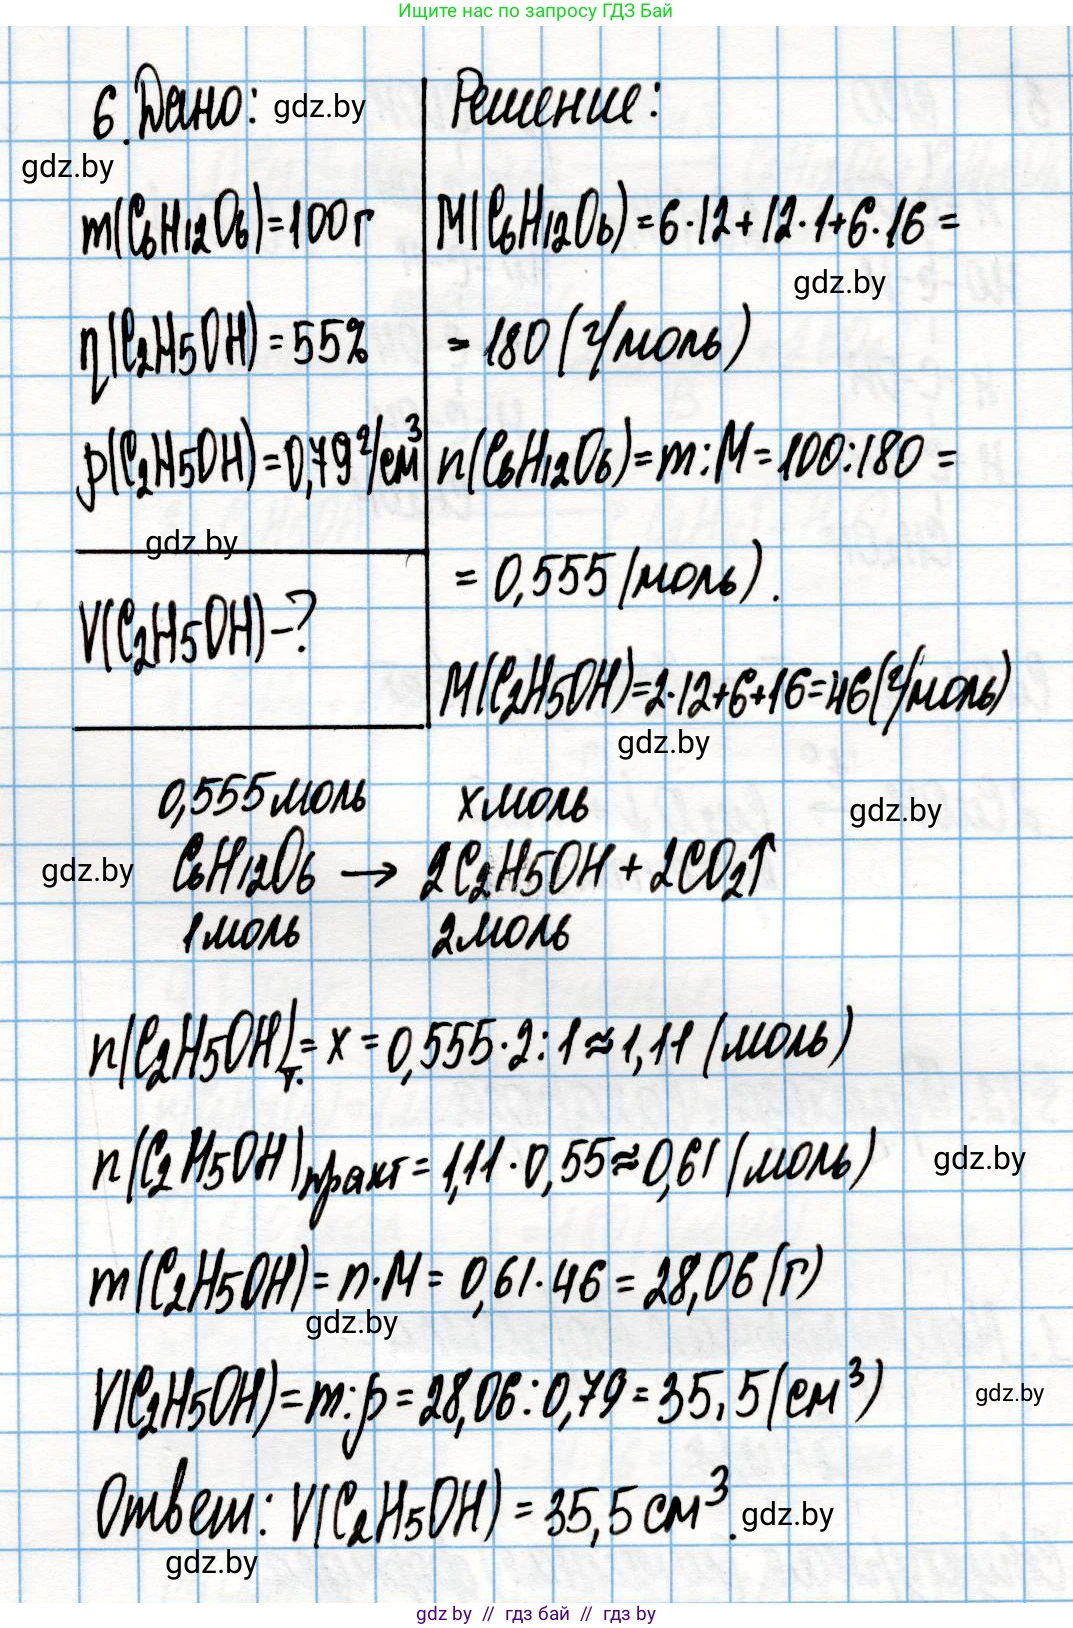 Ищите нас по запросу ГДЗ Бай
6. Дано: gdz.by
gdz.by
m(C₆H₁₂O₆)=100г
η(C₂H₅OH)=55%
ρ(C₂H₅OH)=0,79г/см³
gdz.by
V(C₂H₅OH)-?
Решение:
M(C₆H₁₂O₆)=6·12+12·1+6·16=
gdz.by
=180(г/моль)
n(C₆H₁₂O₆)=m:M=100:180=
=0,555(моль).
M(C₂H₅OH)=2·12+6+16=46(г/моль)
gdz.by
0,555моль xмоль gdz.by
gdz.by C₆H₁₂O₆ → 2C₂H₅OH + 2CO₂↑
1моль 2моль
n(C₂H₅OH)т.=x=0,555·2:1≈1,11(моль)
n(C₂H₅OH)практ=1,11·0,55≈0,61(моль) gdz.by
m(C₂H₅OH)=n·M=0,61·46=28,06(г)
gdz.by
V(C₂H₅OH)=m:ρ=28,06:0,79=35,5(см³) gdz.by
Ответ: V(C₂H₅OH)=35,5см³. gdz.by
gdz.by
gdz by // гдз бай // гдз by